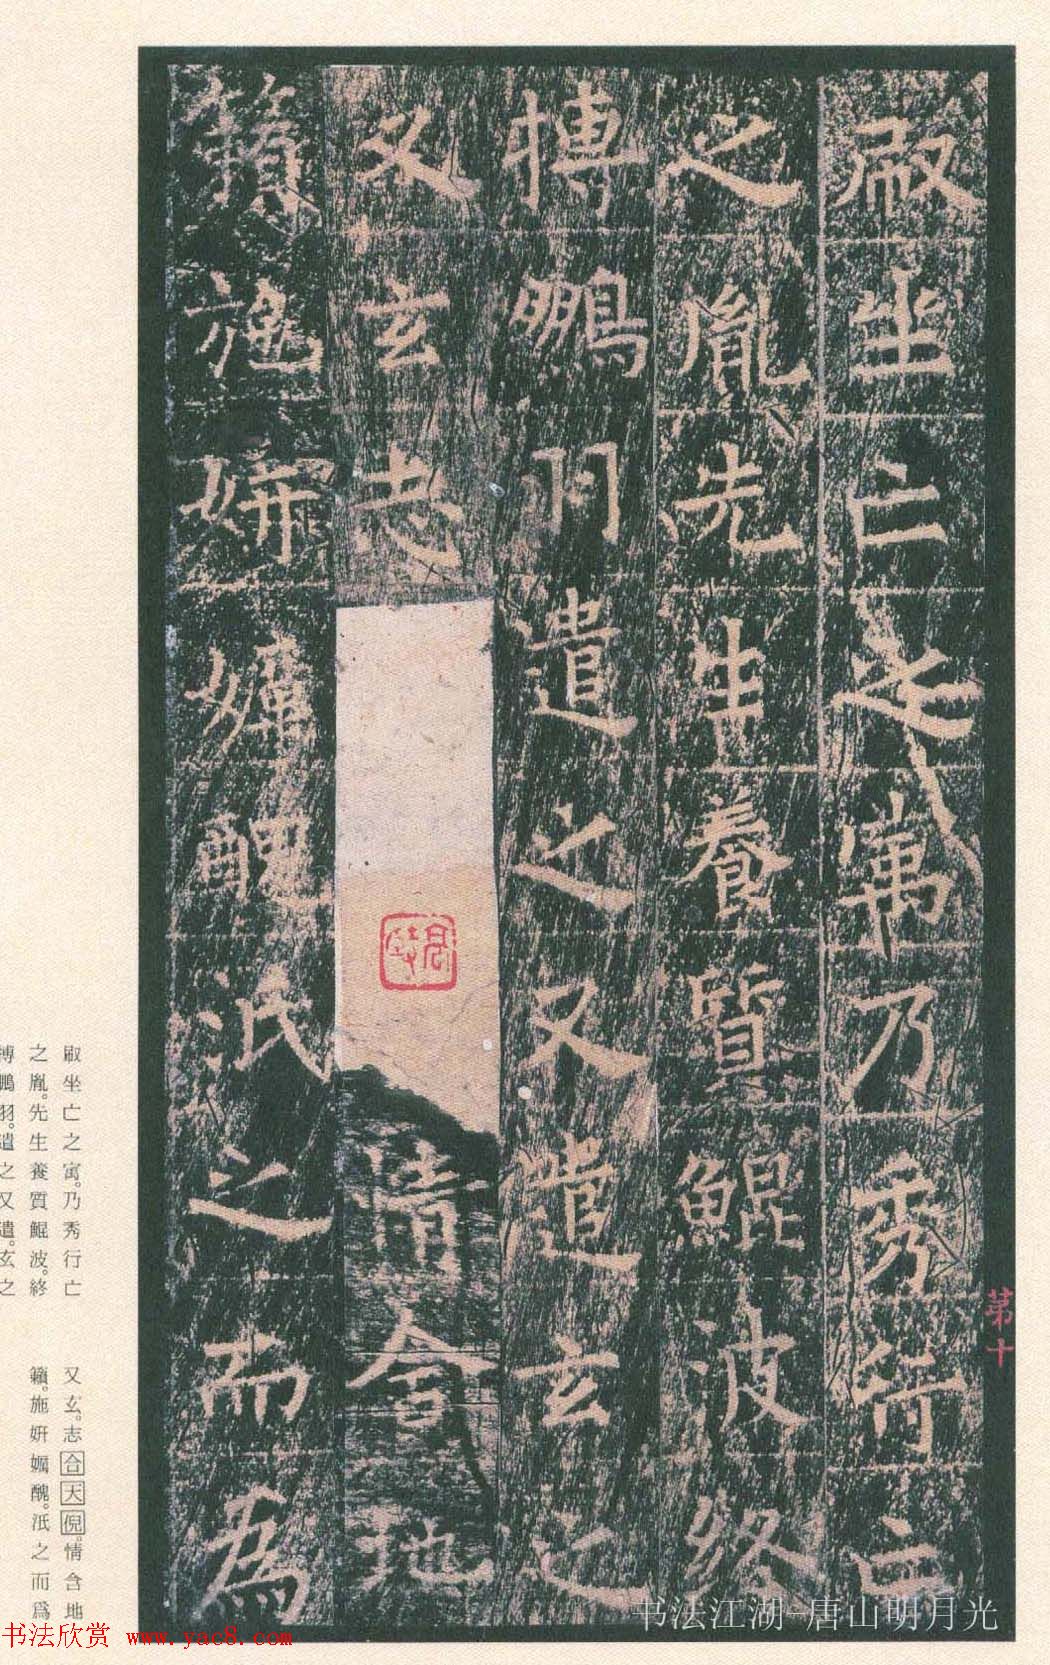 叡坐亡之寓乃秀行亡
之胤先生養質鯤波終
摶鵬羽遣之又遣玄之
又玄志情含地
籟施妍孋醜泯之而爲
第十
叡坐亡之寓。乃秀行亡
之胤。先生養質鯤波。終
摶鵬羽。遣之又遣。玄之
又玄。志合天倪。情含地
籟。施妍孋醜。泯之而爲
书法江湖-唐山明月光
书法欣赏 www.yac8.com